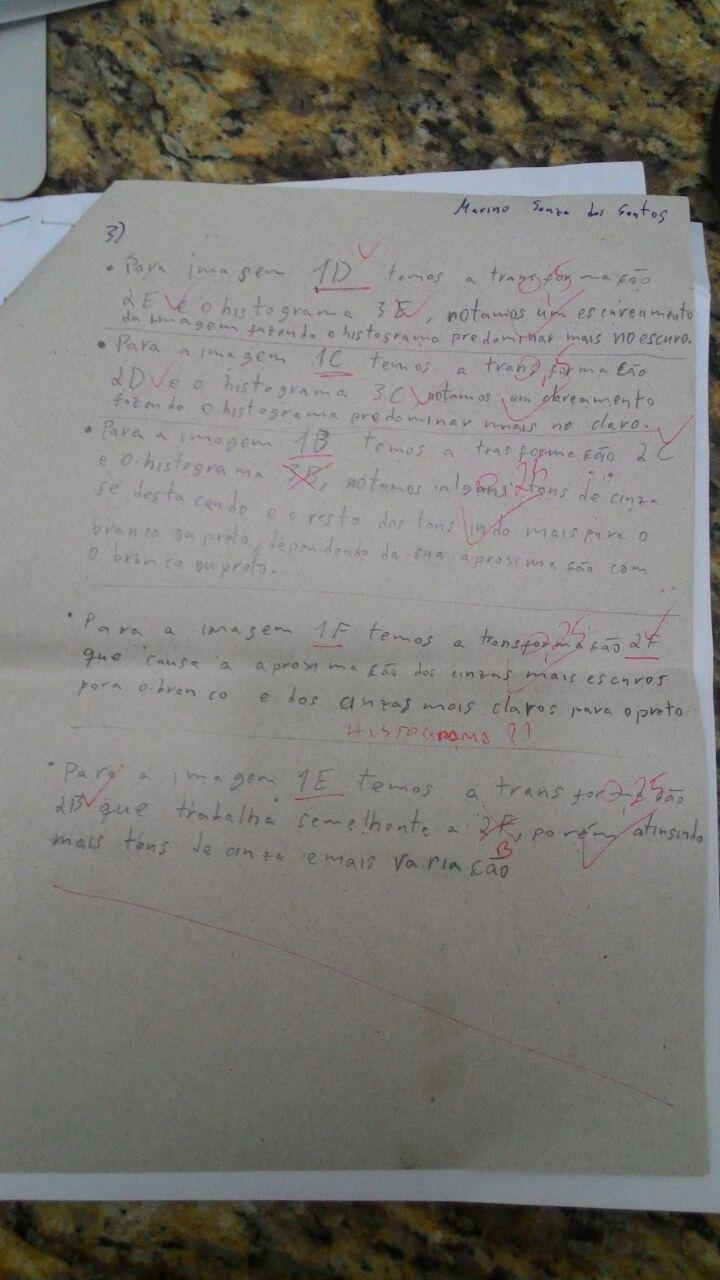 Marino Souza dos Santos
3)
• Para imagem 1D temos a transformação
0,5
2E e o histograma 3E, notamos um escureamento
da imagem fazendo o histograma predominar mais no escuro.
• Para a imagem 1C temos a transformação
0,5
2D e o histograma 3C notamos um clareamento
fazendo o histograma predominar mais no claro.
• Para a imagem 1B temos a trasformação 2C
e o histograma 3B, notamos alguns tons de cinza
0,25
se destacando e o resto dos tons indo mais para o
branco ou preto, dependendo da sua aproximação com
o branco ou preto.
• Para a imagem 1F temos a transformação 2F
0,25
que causa a aproximação dos cinzas mais escuros
para o branco e dos cinzas mais claros para o preto
HISTOGRAMA ??
• Para a imagem 1E temos a transformação
0,25
2B que trabalha semelhante a 2F, porém atingindo
B
mais tons de cinza e mais variação